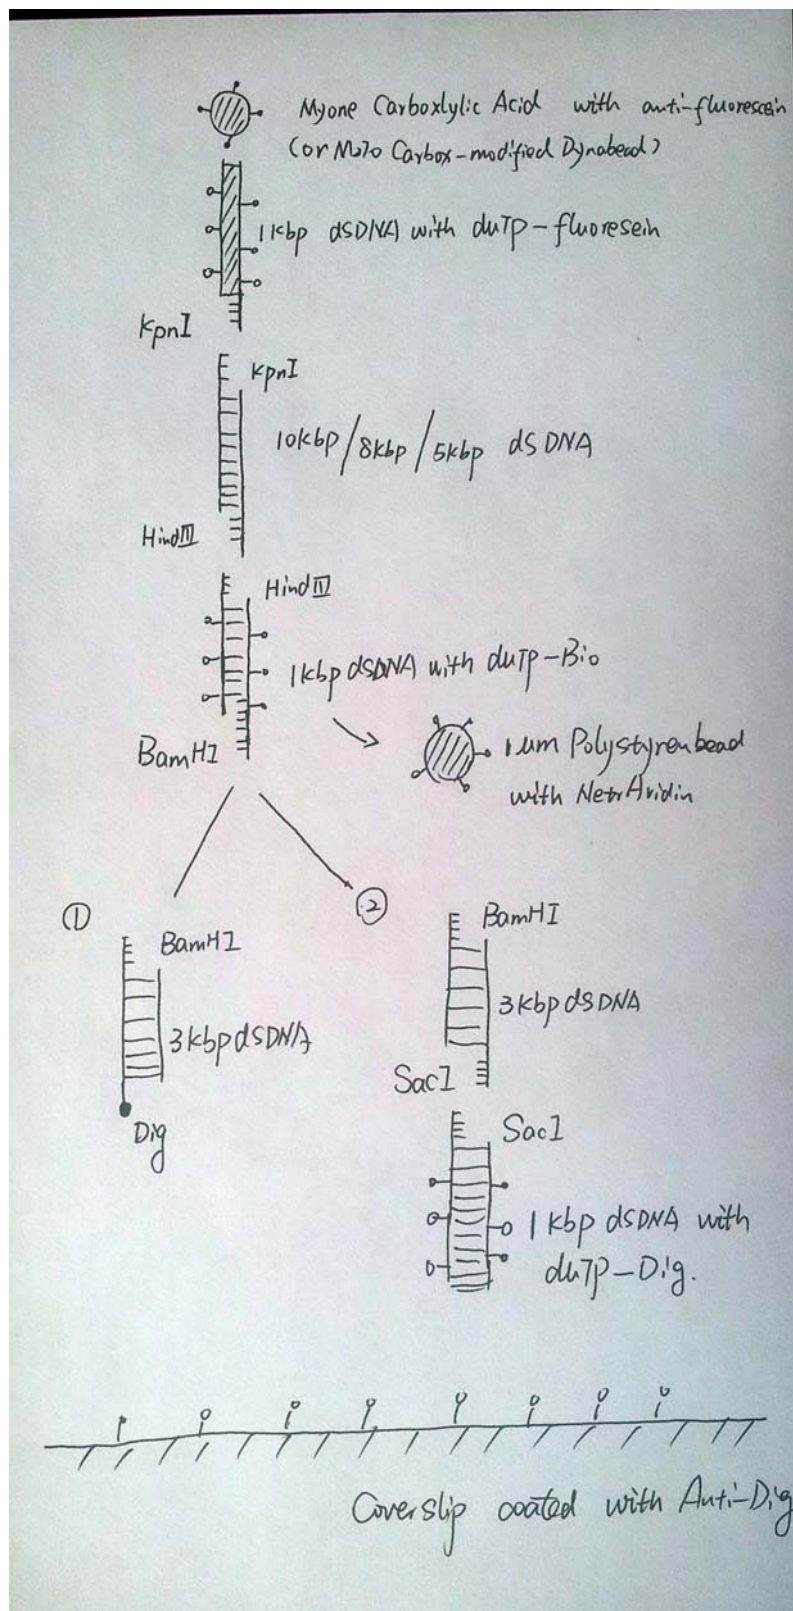 Myone Carboxlylic Acid with anti-fluorescein
(or M270 Carbox-modified Dynabead)
1kbp dsDNA with duTp-fluoresein
KpnI
KpnI
10kbp/8kbp/5kbp dsDNA
HindIII
HindIV
1kbp dsDNA with duTp-Bio
BamHI
1um Polystyrenbead
with NetrAvidin
①
②
BamHI
3kbp dsDNA
Dig
BamHI
3kbp dsDNA
SacI
SacI
1kbp dsDNA with
duTp-Dig.
Coverslip coated with Anti-Dig